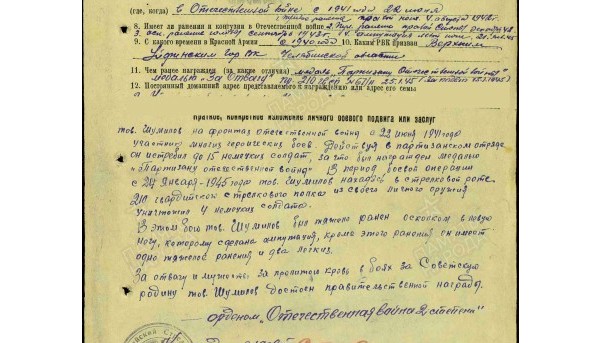 (где, когда) в Отечественной войне с 1941 года 22 июня
8. Имеет ли ранения и контузии в Отечественной войне
9. С какого времени в Красной Армии с 1940 года 10. Каким РВК призван Верхним
Уфинским гор РВК Челябинской области
11. Чем ранее награжден (за какие отличия) медаль „Партизану Отечественной войны"
медалью „За Отвагу" 210 гвсп
12. Постоянный домашний адрес представляемого к награждению или адрес его семьи
Краткое, конкретное изложение личного боевого подвига или заслуг
тов. Шумилов на фронтах отечественной войны с 22 июня 1941 года
участник многих героических боев. Действуя в партизанском отряде
он истребил до 15 немецких солдат, за что был награжден медалью
„Партизану отечественной войны" В период боевой операции
с 24 Января 1945 года тов. Шумилов находясь в стрелковой роте
210 гвардейского стрелкового полка из своего личного оружия
уничтожил 4 немецких солдата.
В этом бою тов. Шумилов был тяжело ранен осколком в левую
ногу, которому сделана ампутация, кроме этого ранения он имеет
одно тяжелое ранения и два легких.
За отвагу и мужество за пролитую кровь в боях за Советскую
родину тов. Шумилов достоен правительственной награды
орденом „Отечественная война 2 степени"